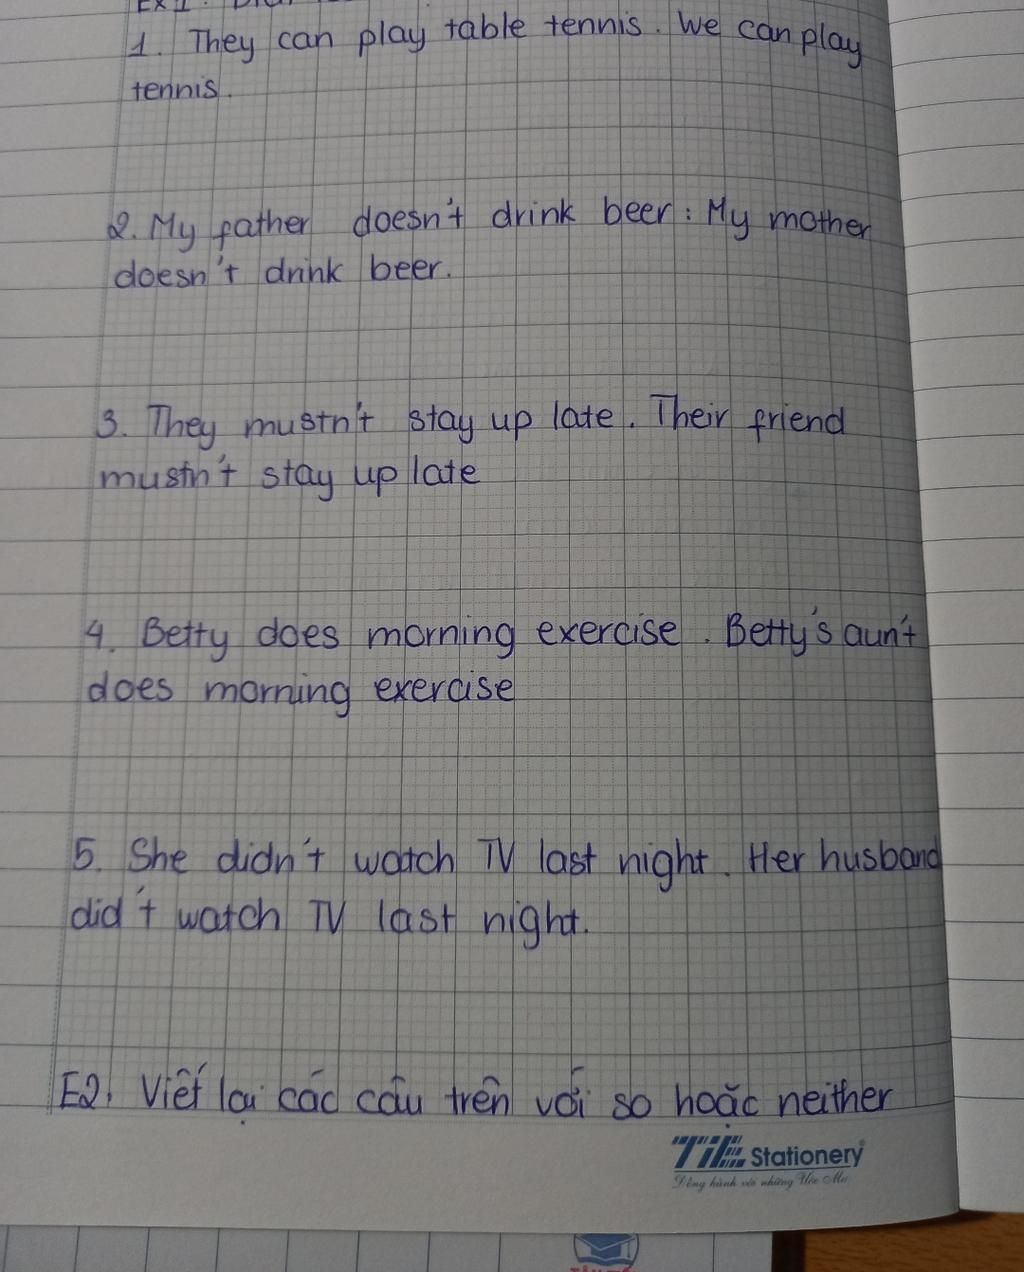 1. They can play table tennis. We can play
tennis.
2. My father doesn't drink beer. My mother
doesn't drink beer.
3. They mustn't stay up late. Their friend
mustn't stay up late
4. Betty does morning exercise. Betty's aun't
does morning exercise
5. She didn't watch TV last night. Her husband
did't watch TV last night.
E2. Viết lại các câu trên với so hoặc neither
TiE Stationery
Đồng hành với những Ước Mơ